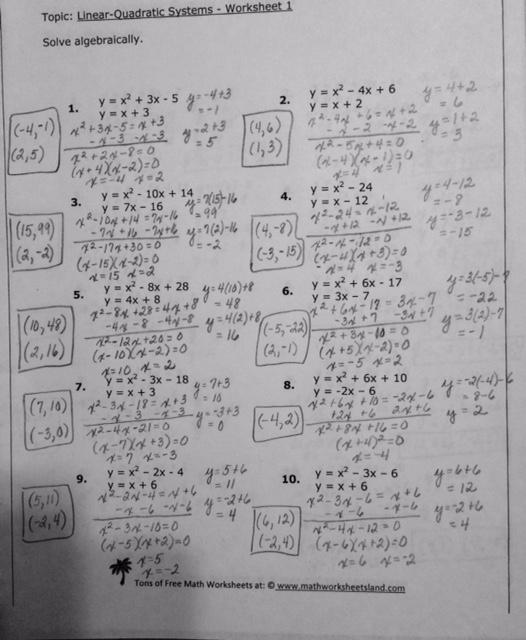 Topic: Linear-Quadratic Systems - Worksheet 1
Solve algebraically.
1.
y = x² + 3x - 5
y = x + 3
x² + 3x - 5 = x + 3
- x - 3 - x - 3
x² + 2x - 8 = 0
(x + 4)(x - 2) = 0
x = -4 x = 2
y = -4 + 3
= -1
y = 2 + 3
= 5
(-4, -1)
(2, 5)
2.
y = x² – 4x + 6
y = x + 2
x² - 4x + 6 = x + 2
- x - 2 - x - 2
x² - 5x + 4 = 0
(x - 4)(x - 1) = 0
x = 4 x = 1
y = 4 + 2
= 6
y = 1 + 2
= 3
(4, 6)
(1, 3)
3.
y = x² - 10x + 14
y = 7x - 16
x² - 10x + 14 = 7x - 16
- 7x + 16 - 7x + 16
x² - 17x + 30 = 0
(x - 15)(x - 2) = 0
x = 15 x = 2
y = 7(15) - 16
= 99
y = 7(2) - 16
= -2
(15, 99)
(2, -2)
4.
y = x² – 24
y = x - 12
x² - 24 = x - 12
- x + 12 - x + 12
x² - x - 12 = 0
(x - 4)(x + 3) = 0
x = 4 x = -3
y = 4 - 12
= -8
= -3 - 12
= -15
(4, -8)
(-3, -15)
5.
y = x² - 8x + 28
y = 4x + 8
x² - 8x + 28 = 4x + 8
- 4x - 8 - 4x - 8
x² - 12x + 20 = 0
(x - 10)(x - 2) = 0
x = 10 x = 2
y = 4(10) + 8
= 48
y = 4(2) + 8
= 16
(10, 48)
(2, 16)
6.
y = x² + 6x - 17
y = 3x - 7
x² + 6x - 17 = 3x - 7
- 3x + 7 - 3x + 7
x² + 3x - 10 = 0
(x + 5)(x - 2) = 0
x = -5 x = 2
y = 3(-5) - 7
= -22
y = 3(2) - 7
= -1
(-5, -22)
(2, -1)
7.
y = x² - 3x - 18
y = x + 3
x² - 3x - 18 = x + 3
- x - 3 - x - 3
x² - 4x - 21 = 0
(x - 7)(x + 3) = 0
x = 7 x = -3
y = 7 + 3
= 10
y = -3 + 3
= 0
(7, 10)
(-3, 0)
8.
y = x² + 6x + 10
y = -2x - 6
x² + 6x + 10 = -2x - 6
+ 2x + 6 2x + 6
x² + 8x + 16 = 0
(x + 4)² = 0
x = -4
y = -2(-4) - 6
= 8 - 6
y = 2
(-4, 2)
9.
y = x² – 2x - 4
y = x + 6
x² - 2x - 4 = x + 6
- x - 6 - x - 6
x² - 3x - 10 = 0
(x - 5)(x + 2) = 0
x = 5
x = -2
y = 5 + 6
= 11
y = -2 + 6
= 4
(5, 11)
(-2, 4)
10.
y = x² – 3x - 6
y = x + 6
x² - 3x - 6 = x + 6
- x - 6 - x - 6
x² - 4x - 12 = 0
(x - 6)(x + 2) = 0
x = 6 x = -2
y = 6 + 6
= 12
y = -2 + 6
= 4
(6, 12)
(-2, 4)
Tons of Free Math Worksheets at: © www.mathworksheetsland.com